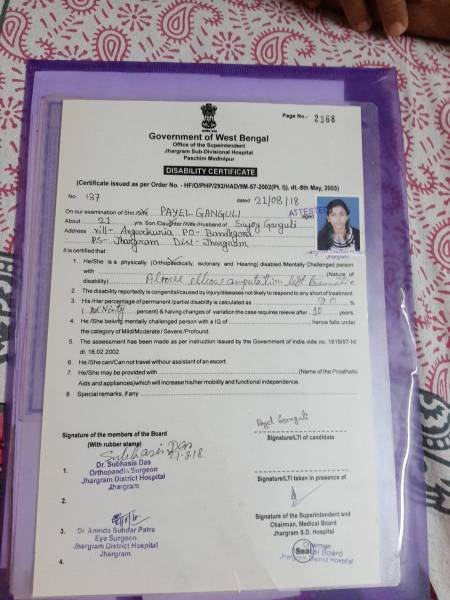 Page No.- 2368
Government of West Bengal
Office of the Superintendent
Jhargram Sub-Divisional Hospital
Paschim Medinipur
DISABILITY CERTIFICATE
(Certificate issued as per Order No. - HF/O/PHP/292/HAD/9M-57-2002(Pt. I), dt.-8th May, 2003)
No. 137 dated 21/08/18
On our examination of Shri/Smt PAYEL GANGULI ATTESTED aged
About 21 yrs. Son /Daughter /Wife /Husband of Sujoy Ganguli
Address Vill- PO-
PS- Jhargram Dist- Jhargram
Jhargram
It is certified that :
1. He/She is a physically (Orthopaedically, visionary and Hearing) disabled /Mentally Challenged person
with Above elbow amputation left (Nature of
disability)
2. The disability reportedly is congental/caused by injury/diseases not likely to respond to any short of treatment.
3. His /Her percentage of permanent /partial disability is calculated as 90 %
( Ninety percent) & halving changes of variation the case requires releive after 10 years.
4. He /She being mentally challenged person with a IQ of hence falls under
the category of Mild/Moderate / Severe /Profound.
5. The assessment has been made as per instruction issued by the Government of India vide no. 1618/97-NI
dt. 18.02.2002.
6. He /She can/Can not travel without assistant of an escort.
7. He/She may be provided with (Name of the Prosthatic
Aids and appliances)which will increase his/her mobility and functional independance.
8 Special remarks, if any
Payel Ganguli
Signature of the members of the Board
(With rubber stamp)
Signature/LTI of candidate
Subhasis Das
1. Dr. Subhasis Das
Orthopaedic Surgeon
Jhargram District Hospital
Jhargram
Signature/LTI taken in presence of
2.
3. Dr Aninda Sundar Patra
Eye Surgeon
Jhargram District Hospital
Jhargram
4.
Signature of the Superintendent and
Chairman, Medical Board
Jhargram S.D. Hospital
Chairman
Seal
Medical Board
Jhargram District Hospital